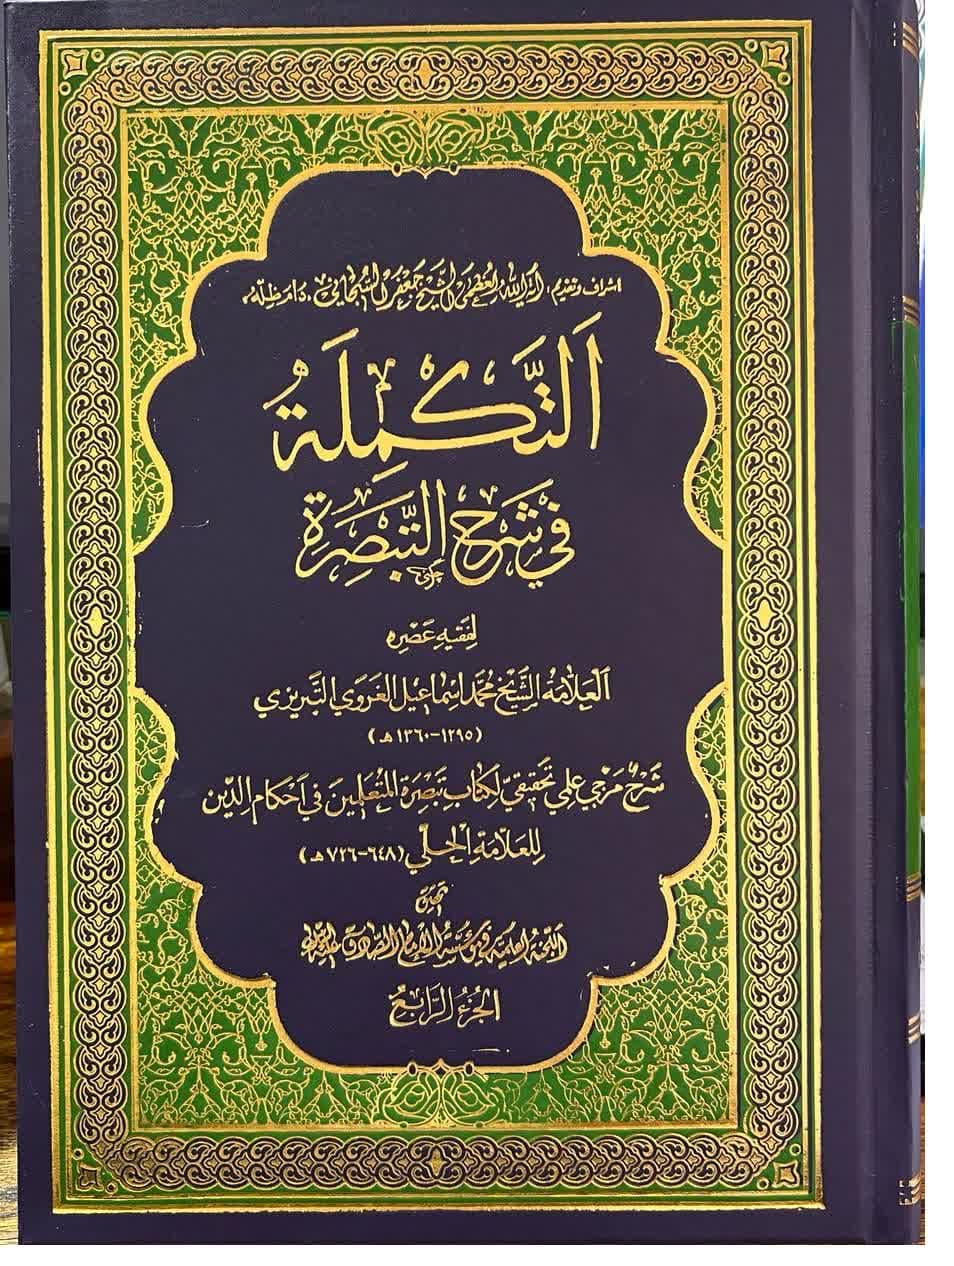 اشراف وتقديم: آية الله العظمى الشيخ جعفر السبحاني «دام ظله»
اَلتَّكمِلَةُ
في شَرحِ التَّبصِرَةِ
لِفَقيهِ عَصْرِه
اَلعَلاّمَةُ الشَّيْخ مُحَمَّد اِسْمَاعيل الغَرَوي التَّبريزي
(١٢٩٥-١٣٦٠ هـ)
شَرحٌ مَزجي علمي تحقيقيّ لِكتابِ تَبْصِرَة المُتَعَلِّمينَ في اَحْكامِ الدّين
لِلعَلاّمَةِ الحِلّي (٦٤٨-٧٢٦ هـ)
تحقيق
اللجنة العلمية في مؤسسة الإمام الصادق
الجُزءُ الرّابعُ